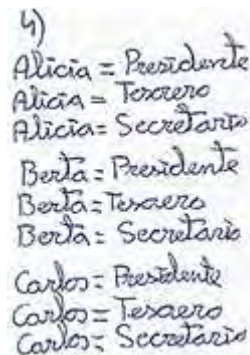 4)
Alicia = Presidente
Alicia = Tesorero
Alicia = Secretario
Berta = Presidente
Berta = Tesorero
Berta = Secretario
Carlos = Presidente
Carlos = Tesorero
Carlos = Secretario